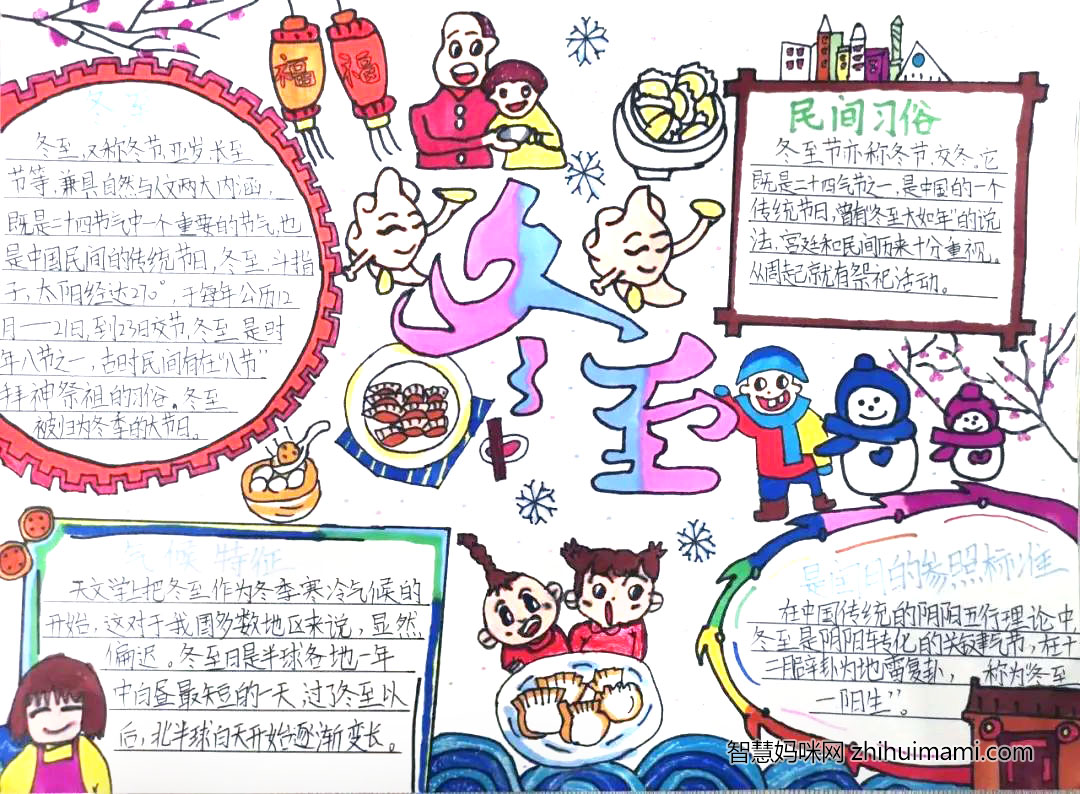 冬至
冬至，又称冬节、亚岁、长至
节等，兼具自然与人文两大内涵，
既是二十四节气中一个重要的节气，也
是中国民间的传统节日。冬至，斗指
子，太阳经达270°，于每年公历12
月——21日，到23日交节。冬至，是时
年八节之一，古时民间有在“八节”
拜神祭祖的习俗。冬至
被归为冬季的大节日。
福
福
冬至
民间习俗
冬至节亦称冬节、交冬，它
既是二十四气节之一，是中国的一个
传统节日，曾有“冬至大如年”的说
法，宫廷和民间历来十分重视。
从周起就有祭祀活动。
气候特征
天文学上把冬至作为冬季寒冷气候的
开始，这对于我国多数地区来说，显然
偏迟。冬至日是半球各地一年
中白昼最短的一天，过了冬至以
后，北半球白天开始逐渐变长。
是间日的参照标准
在中国传统的阴阳五行理论中，
冬至是阴阳转化的关键气节，在十
二肥辛卦为地雷复卦， 称为“冬至
一阳生”。
智慧妈咪网 zhihuimami.com